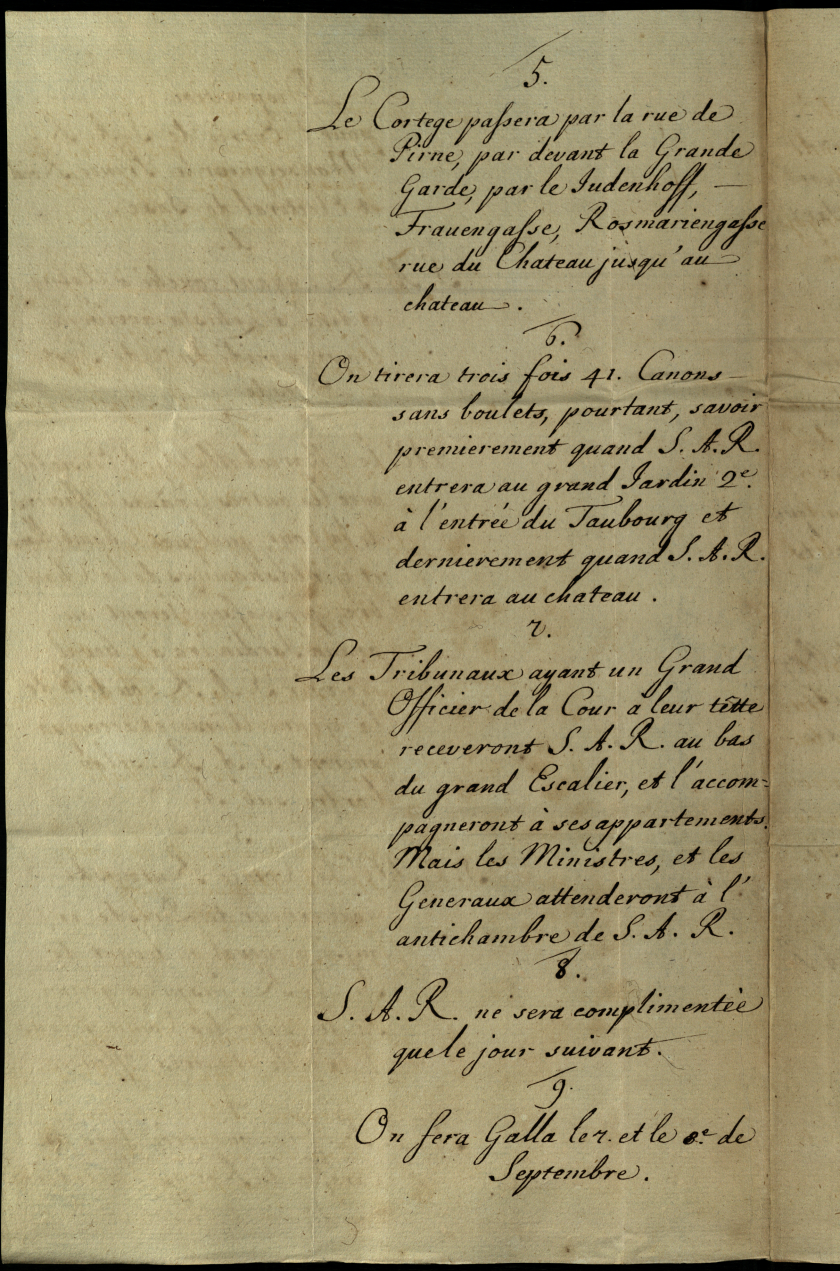 5.
Le Cortege passera par la rue de
Pirne, par devant la Grande
Garde, par le Judenhoff, —
Frauengasse, Rosmariengasse
rue du Chateau jusqu'au
chateau.
6.
On tirera trois fois 41. Canons
sans boulets, pourtant, savoir
premierement quand S. A. R.
entrera au grand Jardin 2e.
à l'entrée du Faubourg et
dernierement quand S. A. R.
entrera au chateau.
7.
Les Tribunaux ayant un Grand
Officier de la Cour a leur tette
receveront S. A. R. au bas
du grand Escalier, et l'accom=
pagneront à ses appartements.
Mais les Ministres, et les
Generaux attenderont à l'
antichambre de S. A. R.
8.
S. A. R. ne sera complimentée
que le jour suivant.
9.
On fera Galla le 7. et le 8e de
Septembre.